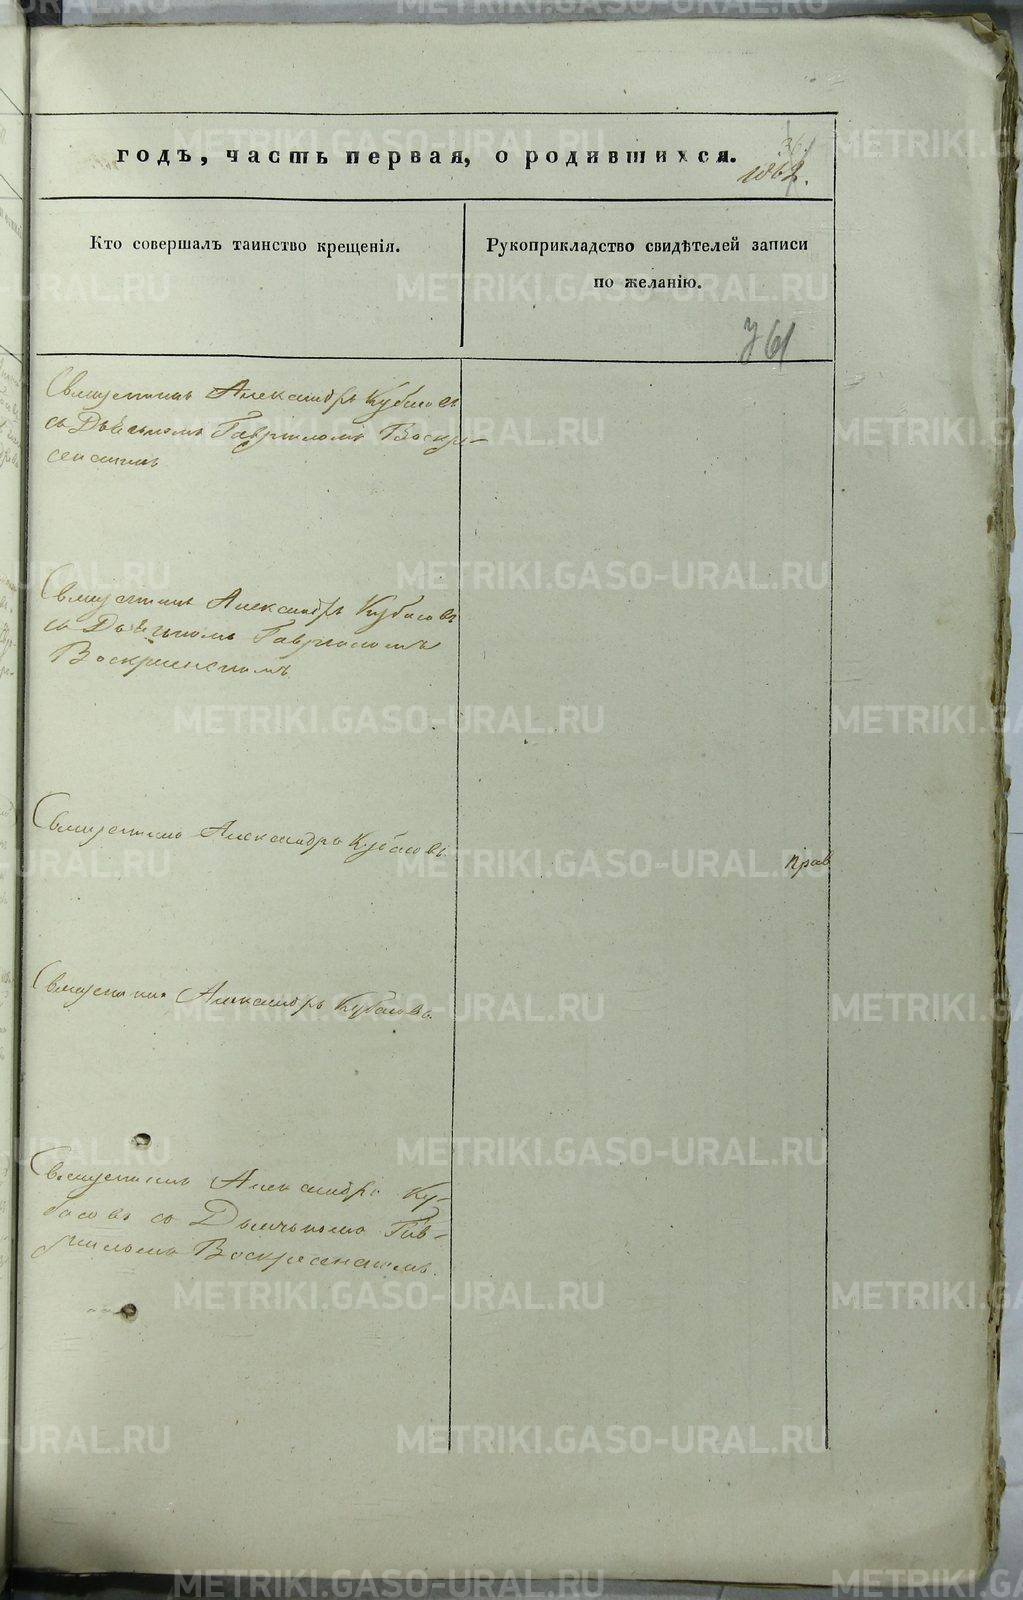 годъ, часть первая, о родившихся.
1862.
Кто совершалъ таинство крещенія.
Рукоприкладство свидѣтелей записи
по желанію.
761
Священникъ Александръ Кубасовъ
съ Дьячкомъ Гавриломъ Воскре-
сенскимъ
Священникъ Александръ Кубасовъ
съ Дьячкомъ Гавриломъ
Воскресенскимъ
Священникъ Александръ Кубасовъ
прав
Священникъ Александръ Кубасовъ.
Священникъ Александръ Ку-
басовъ съ Дьячкомъ Гав-
риломъ Воскресенскимъ.
METRIKI.GASO-URAL.RU